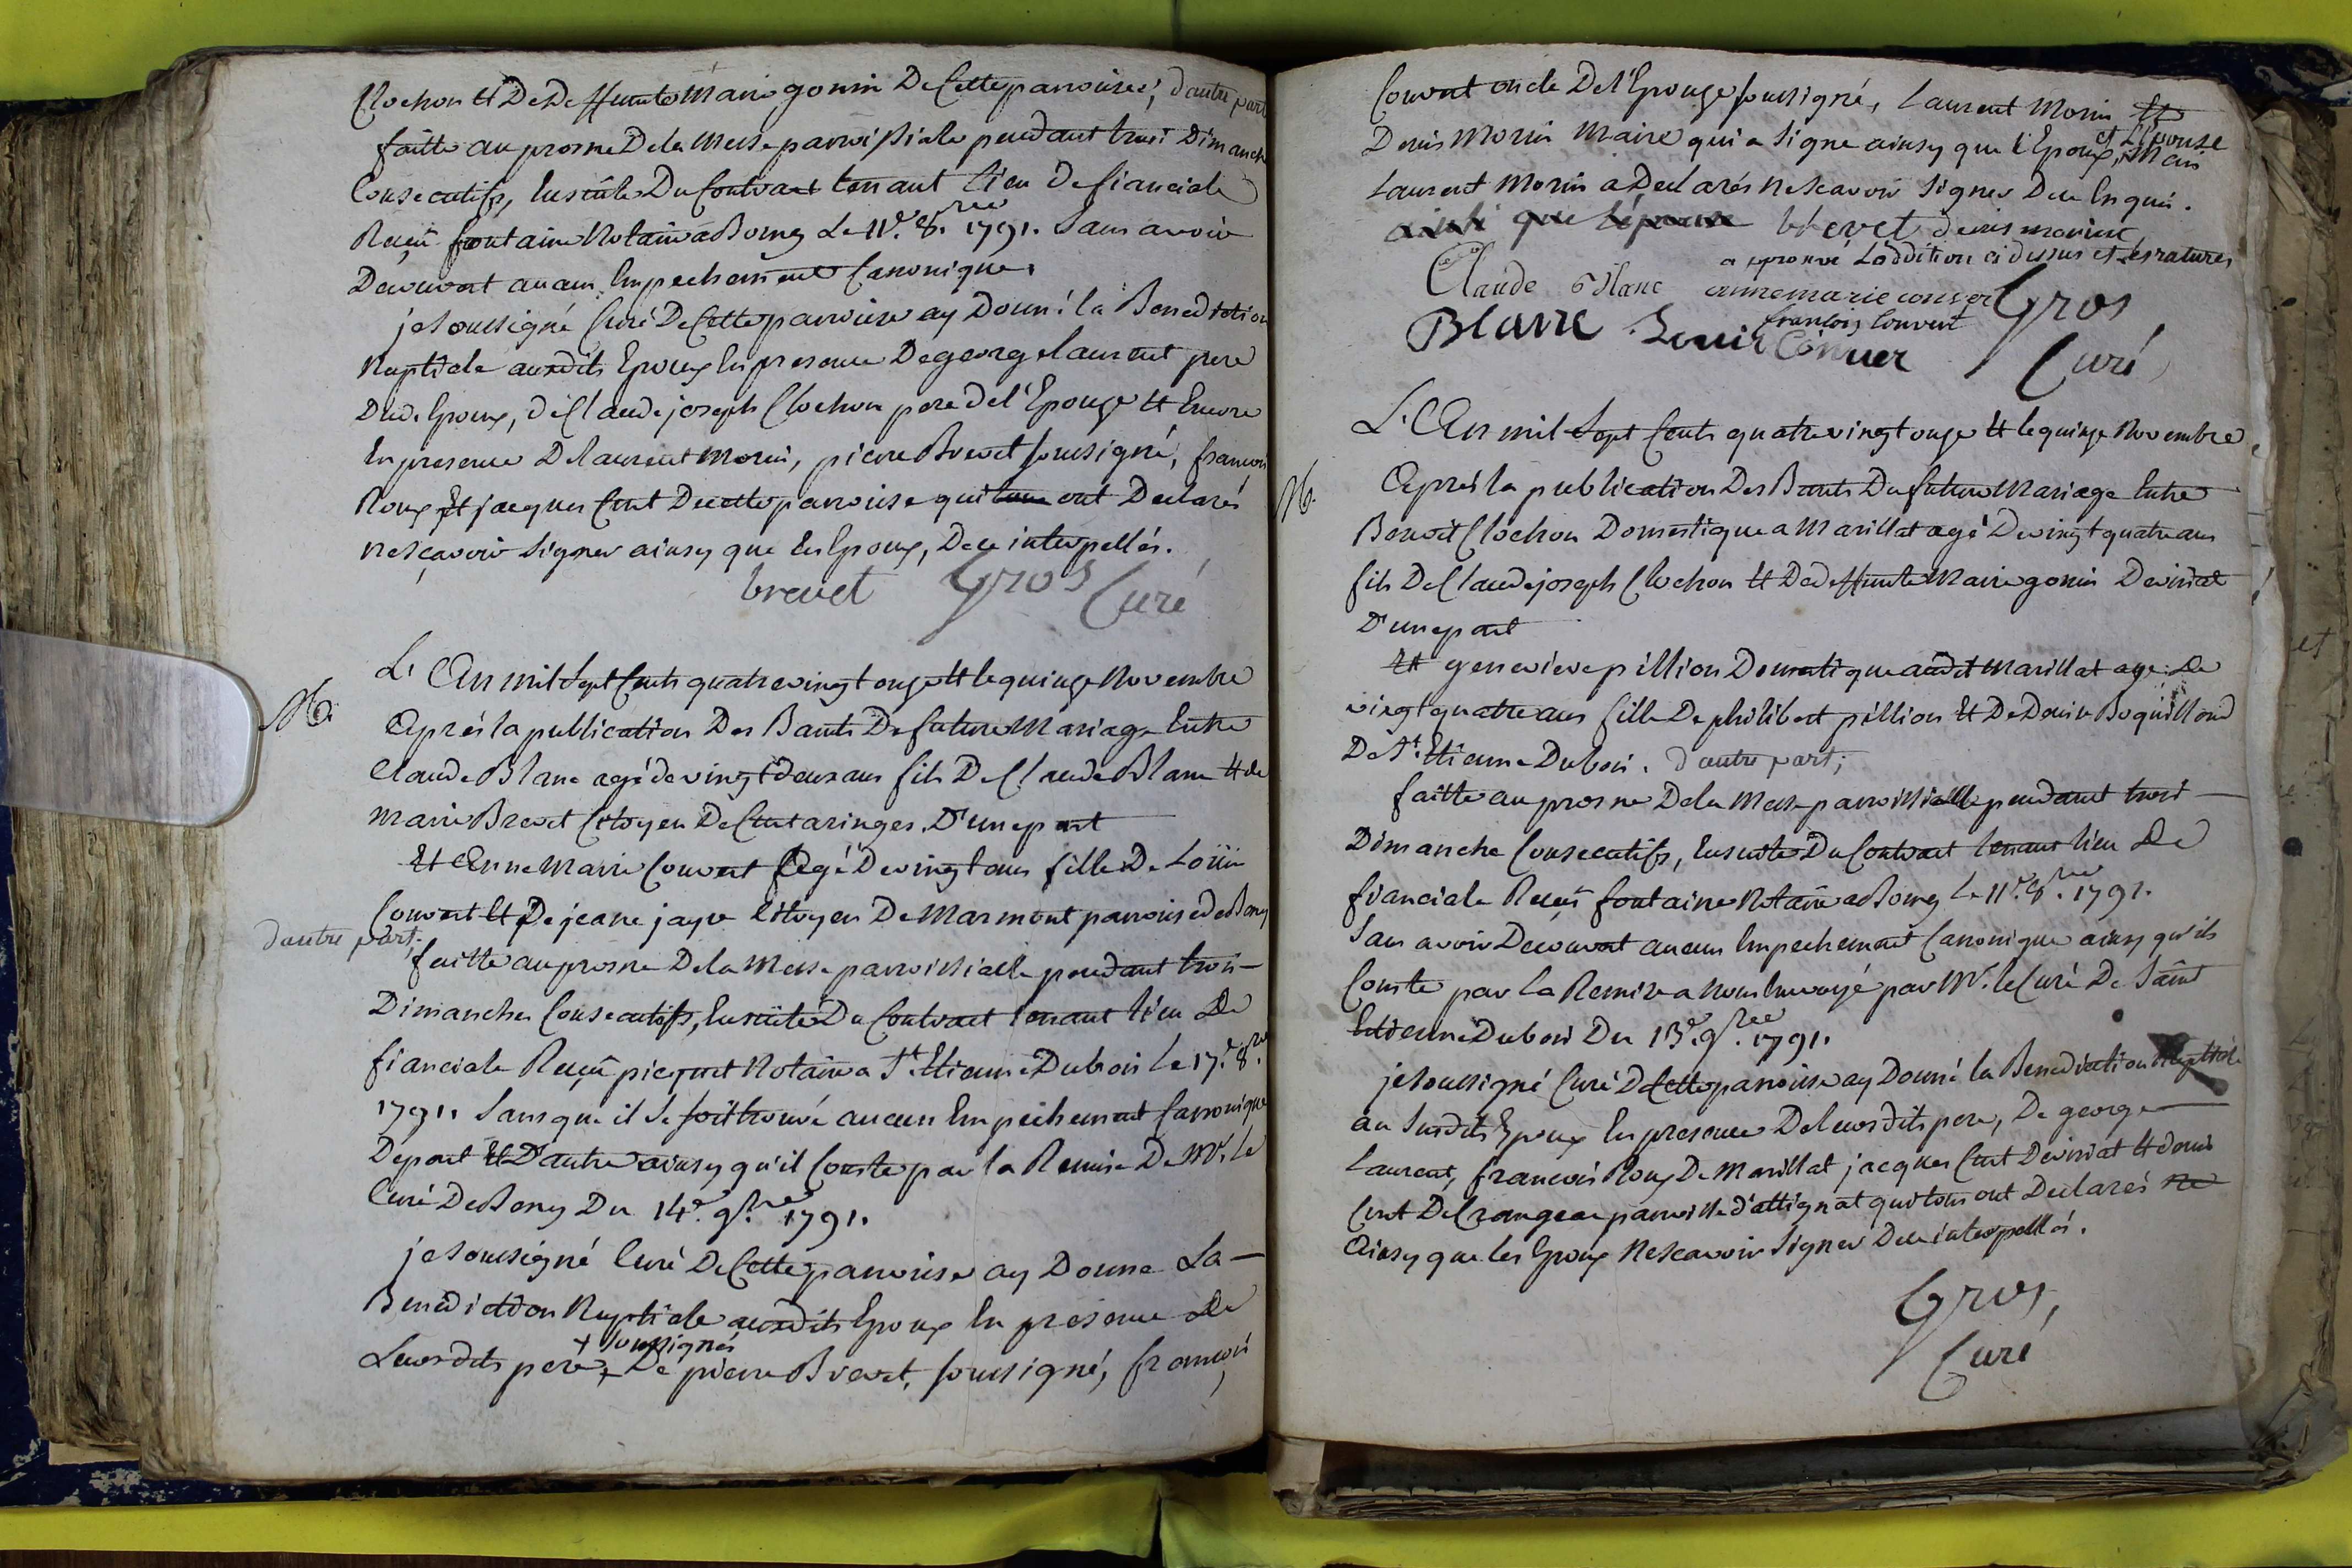 Clochon et De Deffunte Marie gonin De Cette parroisse, d'autre part
faitte au prosne De la Messe parroissiale pendant trois Dimanche
Consecutifs, Ensuite Du Contract tenant lieu De fianciale
Reçu fontaine Notaire a Bourg Le 11e. 8.bre 1791. Sans avoir
Decouvert aucun Empechement Canonique.
je Soussigné Curé De Cette parroisse ay Donné la Benediction
Nuptiale ausdits Epoux En presence De george laurent pere
Dud. Epoux, de Claude joseph Clochon pere de l'Epouse et Encore
En presence De laurent Morin, pierre Brevet soussigné, francois
Roux Et jacques Curt De cette parroisse qui tous ont Declarés
ne sçavoir signer ainsy que les Epoux, De ce interpellés.
brevet Gros Curé
M.
L'An mil Sept Cents quatre vingt onze et le quinze Novembre
Après la publication Des Bants De future Mariage Entre
Claude Blanc agé de vingt deux ans fils De Claude Blanc et de
Marie Brevet Citoyen De Curtaringes, D'une part
Et Anne Marie Convert Agé De vingt ans fille De Loüis
Convert Et De jeane jayr Citoyen De Marmont parroisse de Beny
d'autre part,
faitte au prosne De la Messe parroissialle pendant trois
Dimanches Consecutifs, Ensuite Du Contract tenant lieu De
fianciale Reçu picquet Notaire a St. Etienne Dubois le 17.e 8.bre
1791. Sans que il Se soit trouvé aucun Empechement Canonique
De part Et D'autre ainsy qu'il Conste par la Remise De Mr. le
Curé De Beny Du 14.e 9.bre 1791.
je Soussigné Curé De Cette parroisse ay Donné La
Benediction Nuptiale ausdits Epoux En presence De
+ soussignés
Leurs dits pere, + De pierre Brevet, soussigné, francois
Convert oncle De l'Epouse soussigné, laurent Morin et
Denis Morin Maire qui a Signé ainsy que l'Epoux, et l'Epouse Mais
Laurent Morin a Declarés ne Scavoir signer De ce Enquis.
ainsi que l'épouse brevet denis morin
aprouvé L'addition ci dessus et les ratures
Claude Blanc annemarie conver Gros
Blanc Louis Conver françois Convert Curé
L'An mil Sept Cents quatre vingt onze et le quinze Novembre
M.
Après la publication Des Bants Du future Mariage Entre
Benoit Clochon Domestique a Marillat agé De vingt quatre ans
fils De Claude joseph Clochon et De deffunte Marie gonin De viriat
D'une part
Et genevieve pillion Domestique audit Marillat agé De
vingt quatre ans fille De philibert pillion Et De Denise Boquillond
De St. Etienne Dubois. d'autre part,
faitte au prosne De la Messe parroissialle pendant trois
Dimanche Consecutifs, Ensuite Du Contract tenant lieu De
fianciale Reçu fontaine Notaire a Bourg le 11e. 8.bre 1791.
Sans avoir Decouvert aucun Empechement Canonique ainsy qu'il
Conste par la Remise a nous Envoyé par Mr. le Curé De Saint
Etienne Dubois Du 13.e 9.bre 1791.
je Soussigné Curé De Cette parroisse ay Donné la Benediction Nuptiale
au Susdits Epoux En presence De leurs dits pere, De george
Laurent, francois Roux De Marillat jacques Curt De viriat Et denis
Curt De parroisse d'attignat qui tous ont Declarés ne
Ainsy que les Epoux Ne Scavoir Signer De ce interpellés.
Gros,
Curé